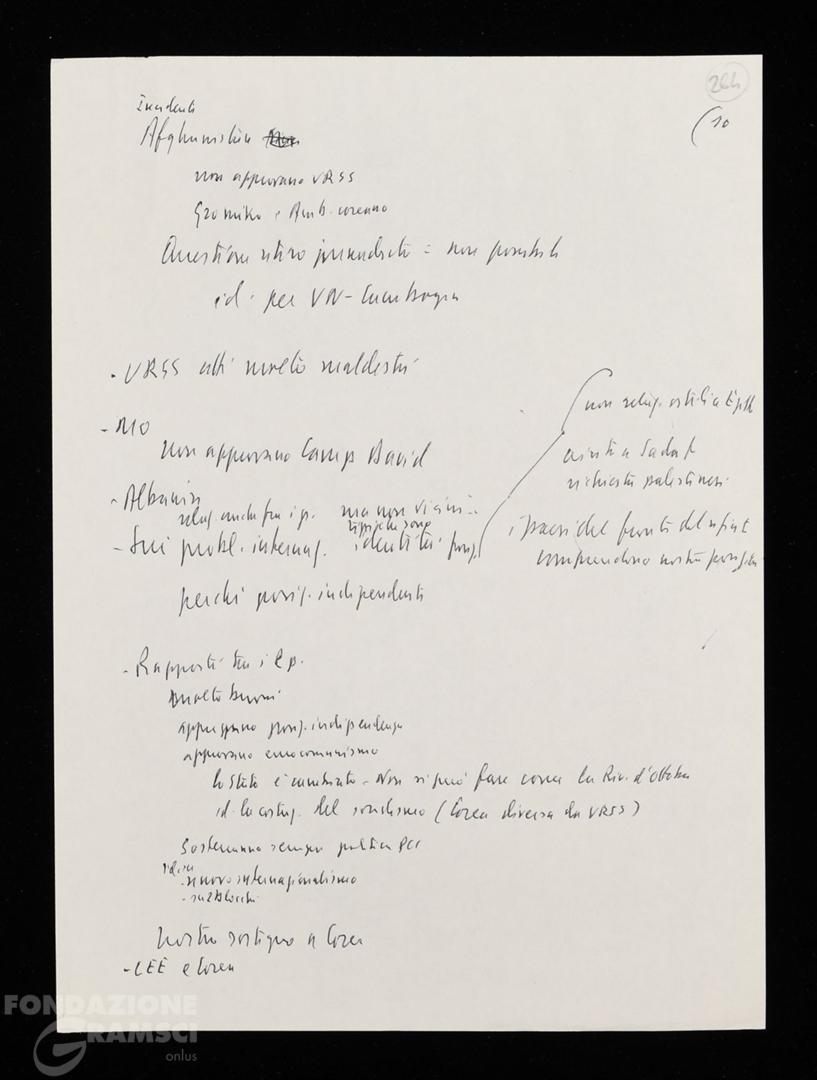 244
(10
Incidenti
Afghanistan
non approvano URSS
Gromiko e Amb. coreano
Questione ritiro immediato = non possibile
id. per VN-Cambogia
- URSS atti molto maldestri
- MO
non approvano Camp David
non relaz. ostili a Egitto
aiuti a Sadat
richiesta palestinesi
i paesi del fronte del rifiuto
comprendono nostra posiz.
- Albania
relaz. anche fra i p. ma non vicini
- Sui probl. internaz. identità posiz.
perché posiz. indipendenti
- Rapporti tra i 2 p.
Molto buoni
appoggiano posiz. indipendenza
approvano eurocomunismo
lo Stato è cambiato - Non si può fare come la Riv. d'Ottobre
id. la costruz. del socialismo (Corea diversa da URSS)
Sosterranno sempre politica PCI
- nuovo internazionalismo
- su 2 blocchi
nostro sostegno a Corea
- CEE e Corea
FONDAZIONE
GRAMSCI
onlus